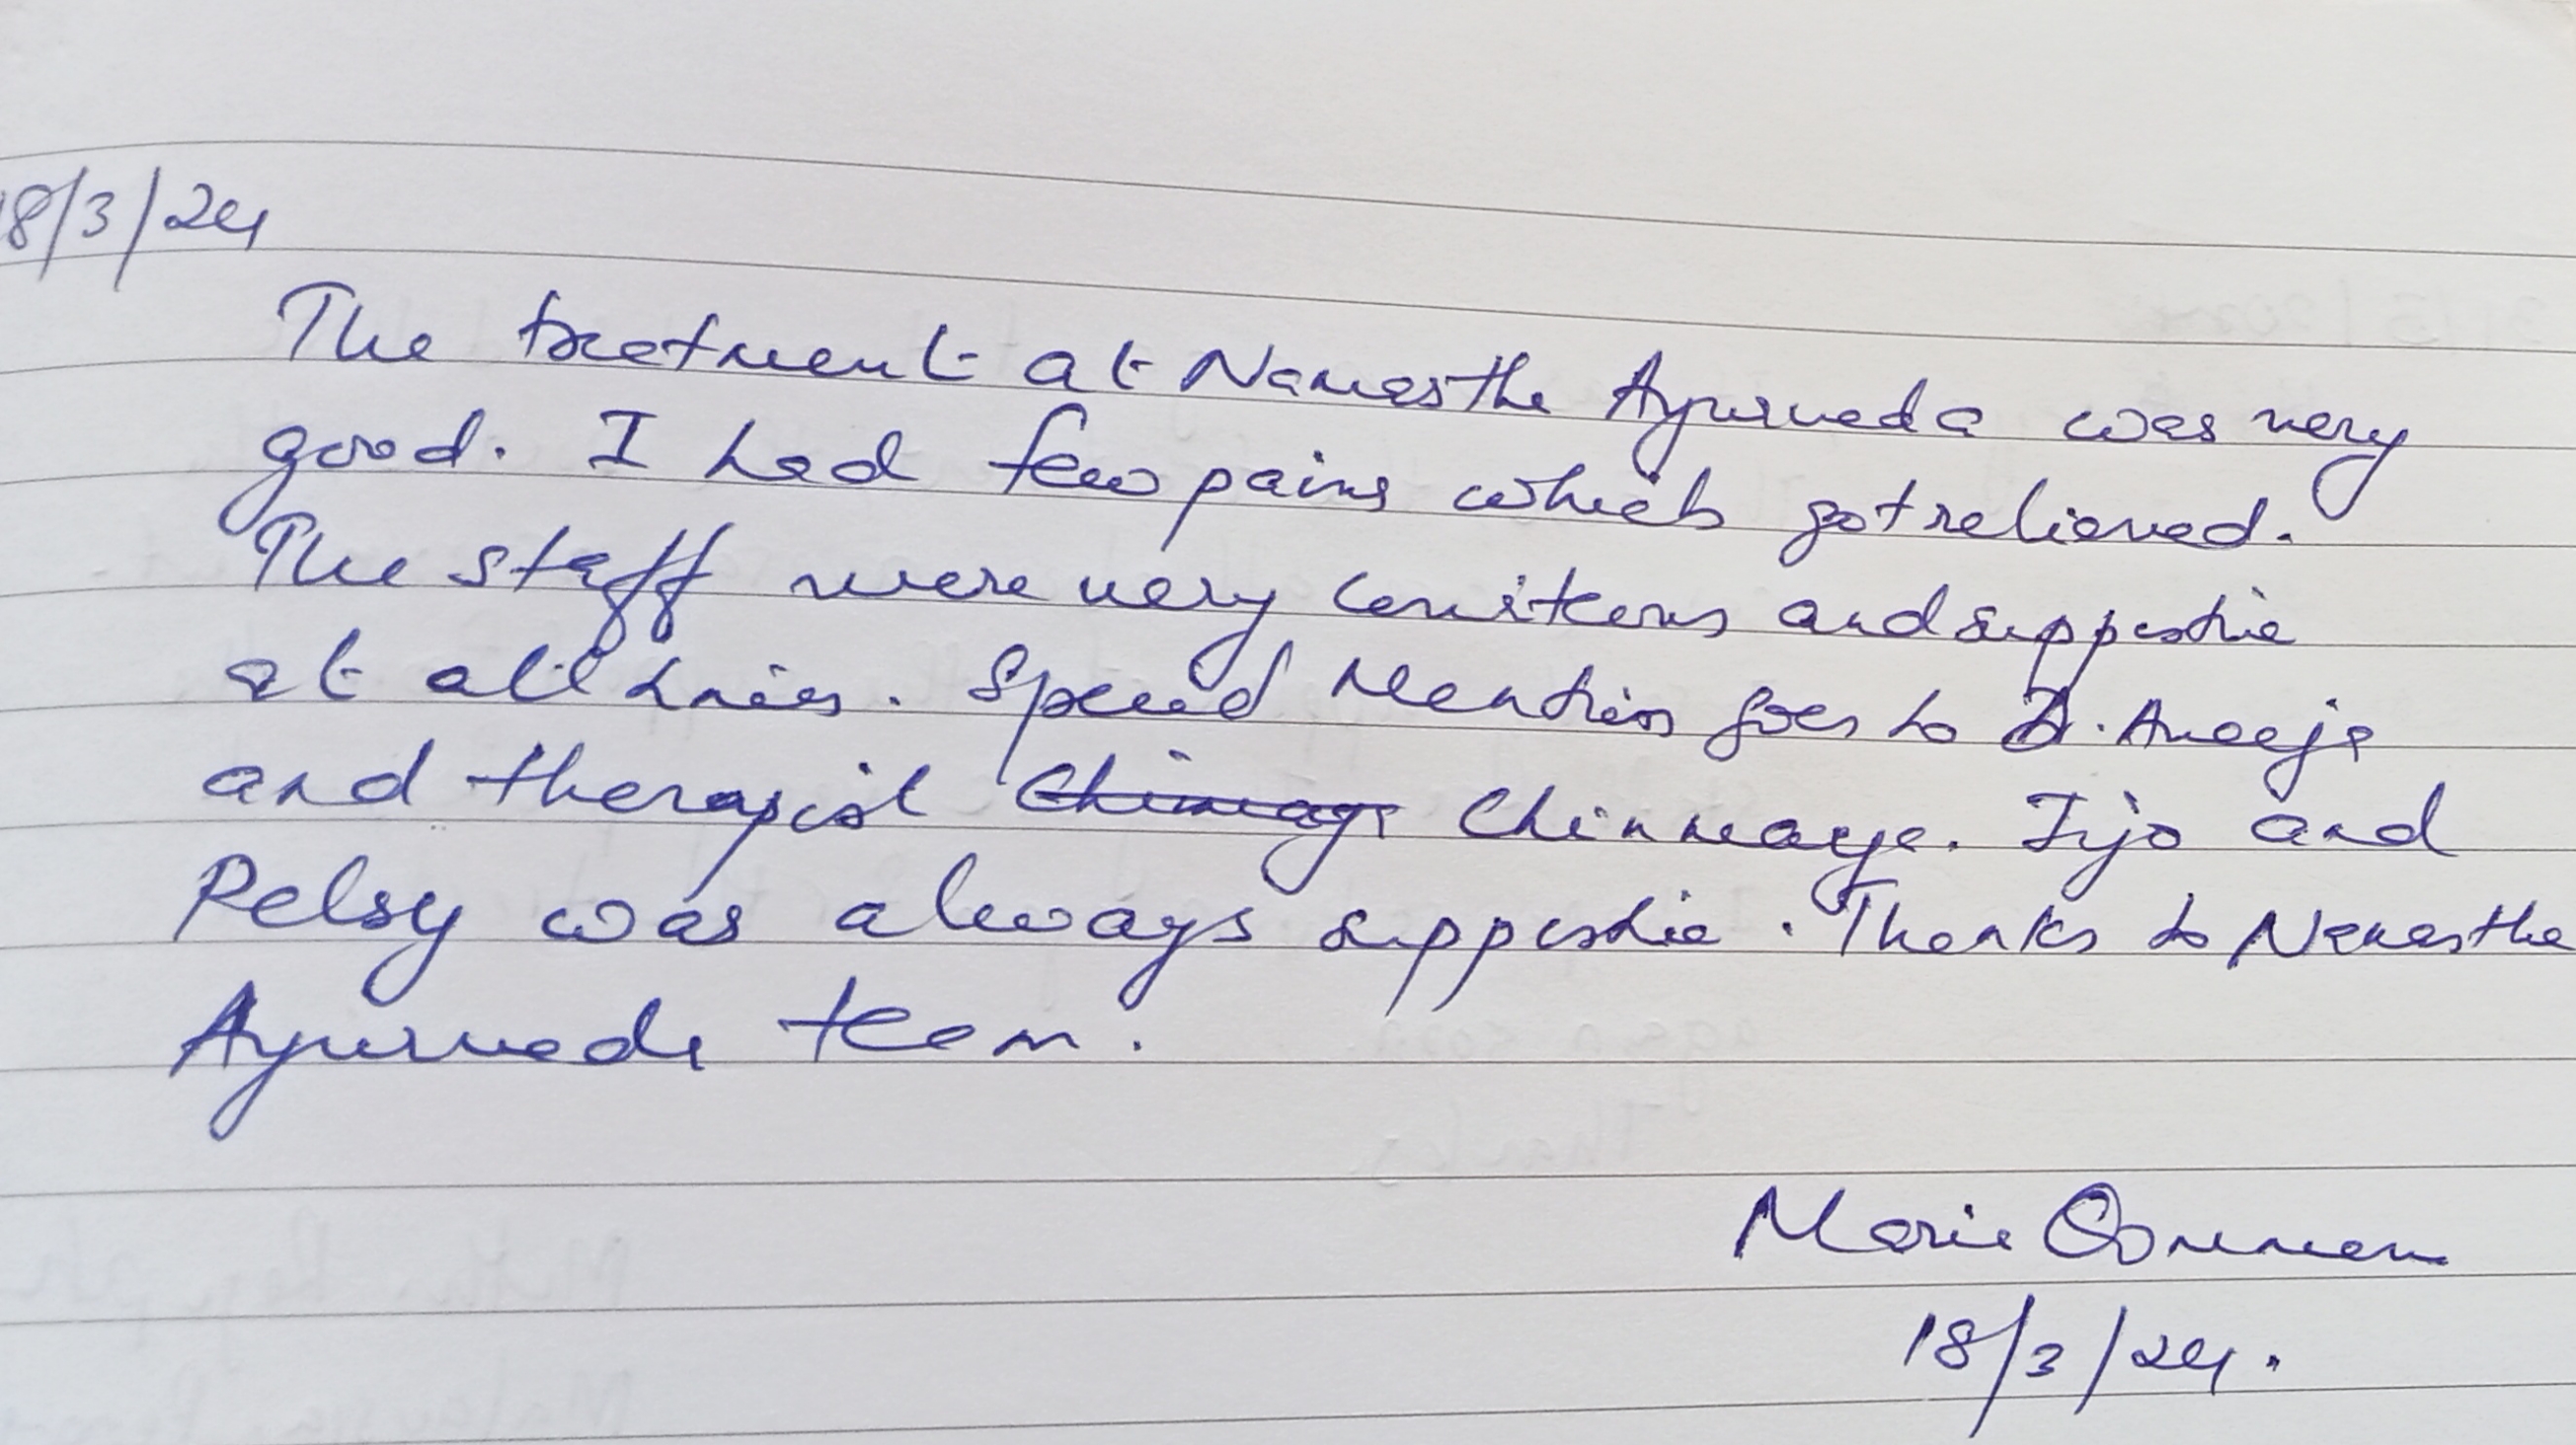 18/3/24
The treatment at Namasthe Ayurveda was very
good. I had few pains which got relieved.
The staff were very courteous and supportive
at all times. Special Mention goes to Dr. Aneeja
and therapist Chinmaya. Jijo and
Pelsy was always supportive. Thanks to Namasthe
Ayurveda team.
Marie Oommen
18/3/24.